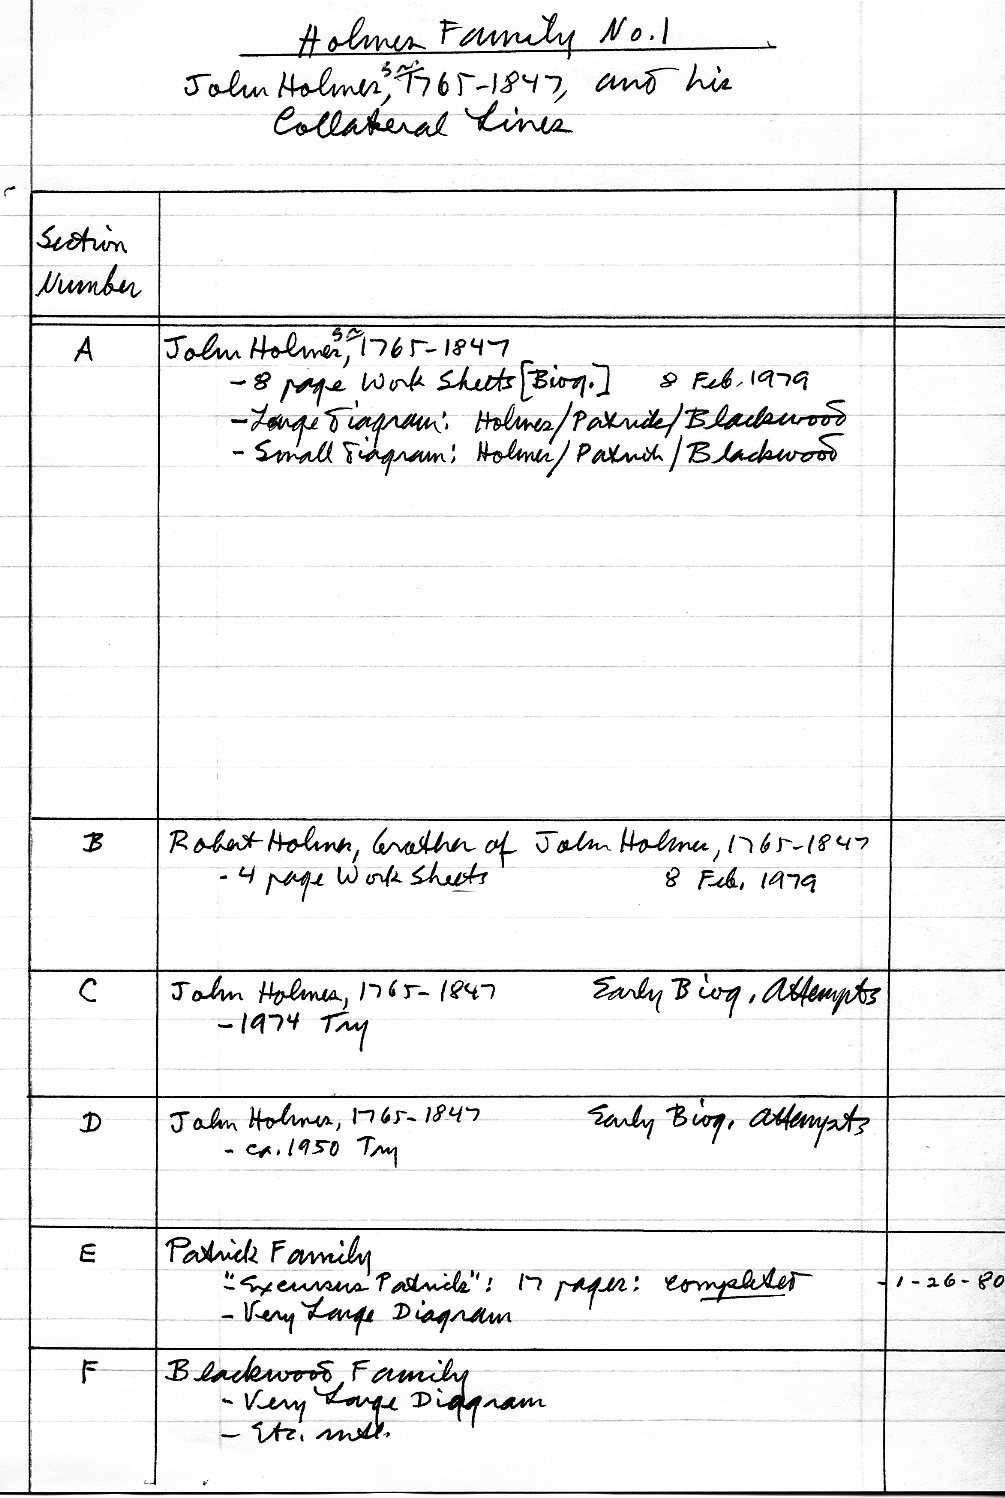 Holmes Family No. 1
John Holmes, Sr. 1765-1847, and his
Collateral Lines
Section
Number
A
John Holmes, Sr. 1765-1847
- 8 page Work Sheets [Biog.] 8 Feb. 1979
- Large Diagram: Holmes/Patrick/Blackwood
- Small Diagram: Holmes/Patrick/Blackwood
B
Robert Holmes, brother of John Holmes, 1765-1847
- 4 page Work Sheets 8 Feb. 1979
C
John Holmes, 1765-1847 Early Biog. Attempts
- 1974 Try
D
John Holmes, 1765-1847 Early Biog. Attempts
- ca. 1950 Try
E
Patrick Family
- "Excursus Patrick": 17 pages: completed - 1-26-80
- Very Large Diagram
F
Blackwood Family
- Very Large Diagram
- Etc. mtl.